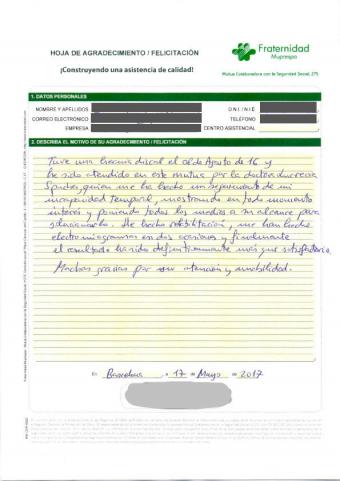 HOJA DE AGRADECIMIENTO / FELICITACIÓN
¡Construyendo una asistencia de calidad!
Fraternidad
Muprespa
Mutua Colaboradora con la Seguridad Social, 275
1. DATOS PERSONALES
NOMBRE Y APELLIDOS
D N I / N I E
CORREO ELECTRÓNICO
TELÉFONO
EMPRESA
CENTRO ASISTENCIAL
2. DESCRIBA EL MOTIVO DE SU AGRADECIMIENTO / FELICITACIÓN
Tuve una hernia discal el de Agosto de 16 y
he sido atendido en esta mutua por la doctora Lucrecia
quien me ha hecho un seguimiento de mi
incapacidad temporal, mostrando en todo momento
interés y poniendo todos los medios a su alcance para
He hecho rehabilitación, me han hecho
electromiogramas en dos ocasiones y finalmente
el resultado ha sido definitivamente más que satisfactorio.
Muchas gracias por su atención y amabilidad.
En Barcelona, a 17 de Mayo de 2017